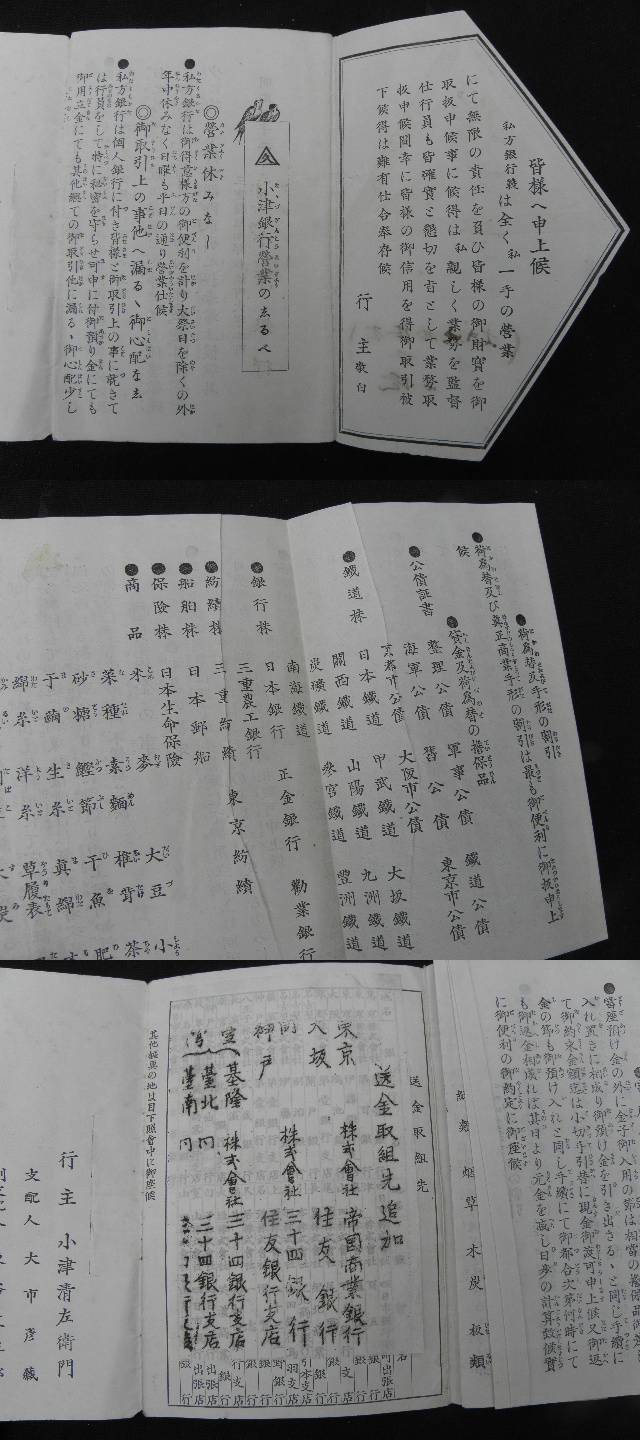 皆様へ申上候
私方銀行義は全く私一手の營業
にて無限の責任を負ひ皆様の御財寶を御
取扱申候事に候得は私親しく業務を監督
仕行員も皆確實と懇切を旨として業務取
扱申候間幸に皆様の御信用を得御取引被
下候得は難有仕合奉存候
行主敬白
小津銀行營業の志るべ
◎營業休みなし
●私方銀行は御得意様方の御便利を計り大祭日を除くの外
年中休みなく日曜も平日の通り營業仕候
◎御取引上の事他へ漏るヽ御心配な志
●私方銀行は個人銀行に付き皆様と御取引上の事に就きて
は行員をして特に秘密を守らせ可申に付御預り金にても
御用立金にても其他總ての御取引他に漏るヽ御心配少し
●荷為替及手形の割引
●荷為替及び眞正商業手形の割引は最も御便利に御扱申上
候
●貸金及荷為替の擔保品
●公債証書 整理公債 軍事公債 鐵道公債
海軍公債 舊公債 東京市公債
京都市公債 大阪市公債
●鐵道株 日本鐵道 甲武鐵道 大坂鐵道
關西鐵道 山陽鐵道 九洲鐵道
炭礦鐵道 參宮鐵道 豐洲鐵道
南海鐵道
●銀行株 日本銀行 正金銀行 勸業銀行
三重農工銀行
●紡績株 三重紡績 東京紡績
●船舶株 日本郵船
●保險株 日本生命保險
●商品 米 麥 大豆 小
菜種 素麵 椎茸 茶
砂糖 鰹節 干魚 肥
干繭 生糸 眞綿
綿糸 洋糸 草履表
●當座預け金の外に金子御入用の節は相當の擔保品御差
入れ置きに相成り御預け金を引き出さるヽと同し手續に
て御約束金額迄は小切手引替に現金御渡可申上候又御返
金の節も御預け入れと同し手續にて御都合次第何時にて
も御返金相成れば其日より元金を減し日歩の計算致候實
に御便利の御約定に御座候
煙草 木炭 板類
送金取組先
送金取組先追加
東京 株式會社 帝國商業銀行
大坂 住友銀行
同 株式會社 三十四銀行
神戸 住友銀行支店
基隆 株式會社 三十四銀行支店
臺北 同 三十四銀行支店
臺南 同
其他極與の地は目下照會中に御座候
行主 小津清左衛門
支配人 大市彦藏